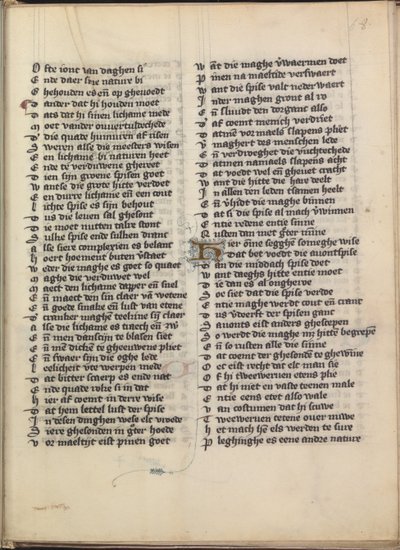 O fte iont van daghen si
E nde daer sine nature bi
G hehouden es en̄ op gheuoedt
D ander dat hi houden moet
D ats dat hi sinen lichame mede
M oet vander
D ie quade humuren af risen
S weren alle die meesters wisen
E en lichame bi naturen heet
E nde te verdriwene ghereet
D ien sijn groene spisen goet
W antse die grote hitte verdoet
E en durre lichame en̄ een out
L ichte spise es sijn behout
D us die leuen sal ghesont
D ie moet nutten talre stont
S ulke spise ende sulken dranc
A lse siere complexien es belanc
H oert hoement buten v̄staet
W eder die maghe es goet so quaet
M aghe die verduwet wel
M aect den lichame dapper en̄ snel
E n̄ maect den sin claer van
E n̄ goede smake en̄ lust van etene
C rancker maghe teeline sijn claer
A lse die lichame es traech en̄
E n̄ men dansijn te blasen siet
E n̄ men dicke te gheeuwene pliet
E n̄ swaer sijn die oghe lede
L eelicheit vte werpen mede
D at bitter scaerp es ende nat
E nde quade rokē si in dat
H ier af coemt in derre wise
D at hem lettel lust der spise
I n desen dinghen wese elc vroede
S iere ghesonden in ḡter hoede
V or maeltijt eist pinen goet
W ant die maghe v̄waermen doet
P inen na maeltide verswaert
W ant die spise valt nederwaert
I nder maghen gront al ro
E n̄ sluudt den dorganc also
D af coemt menich verdriet
D atmē vormaels slapens pliet
V maghert des menschen lede
E n̄ verdroeghet die vuchtechede
D atmen namaels slapens acht
D at voedt wel en̄ gheuet cracht
W ant die hitte die hare deelt
I n allen den leden tsamen heelt
E n̄ v̄hit die maghe binnen
D at si die spise al mach v̄winnen
E ntie redene entie sinne
R usten dan met ḡter minne
H ier om̄e segghē someghe wise
Dat bet voedt die auontspise
D an die middach spise doet
W ant daeghs hitte entie moet
D ie dan es al onghereve
D oe siet dat die spise verde
N tie maghe werdt cout en̄ cranc
D us v̄derft der spisen ganc
S auonts eist anders ghescepen
S o werdt die maghe mz hittē begrepē
E n̄ so rusten alle die sinne
D at coemt der ghesonde te ghewinne
O ec eist recht dat elc man sie
O f hi tweewerven etens plie
D at hi met en vaste teenen male
E ntie eens etet also wale
V an costumen dat hi scuwe
T weewerven etene ouer nuwe
H et mach hem els werden te sure
P leghinghe es eene andre nature